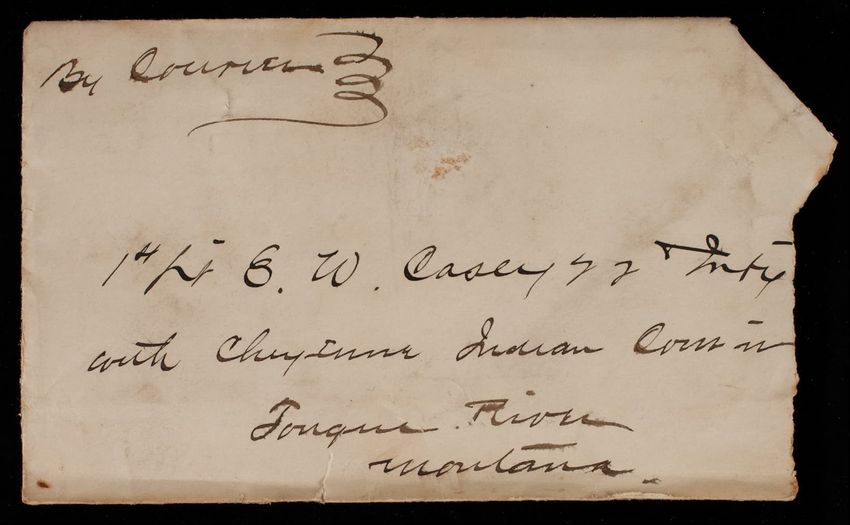 By Courier
1st Lt E. W. Casey 22d Infty
with Cheyenne Indian Com'n
Tongue River
Montana.